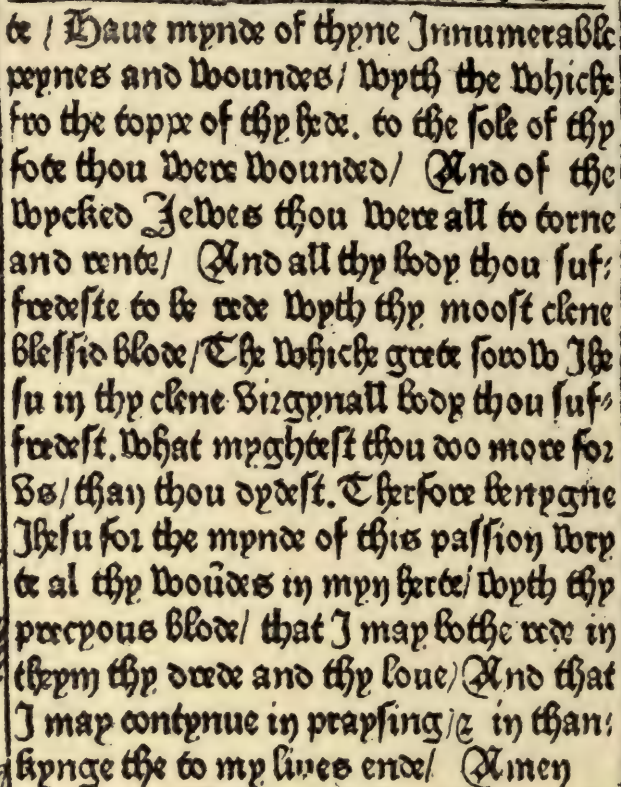 te / Haue mynde of thyne Innumerable
peynes and woundes/ wyth the whiche
fro the toppe of thy hede. to the sole of thy
fote thou were wounded/ And of the
wycked Jewes thou were all to torne
and rente/ And all thy body thou suf:
fredeste to be rede wyth thy moost clene
blessid blode/ The whiche grete sorow Ihe
su in thy clene virgynall body thou suf:
fredest. what myghtest thou doo more for
vs/ than thou dydest. Therfore benygne
Ihesu for the mynde of this passion wry
te al thy woūdes in myn herte/ wyth thy
precyous blode/ that I may bothe rede in
theym thy drede and thy loue/ And that
I may contynue in praysing/ & in than:
kynge the to my lives ende/ Amen